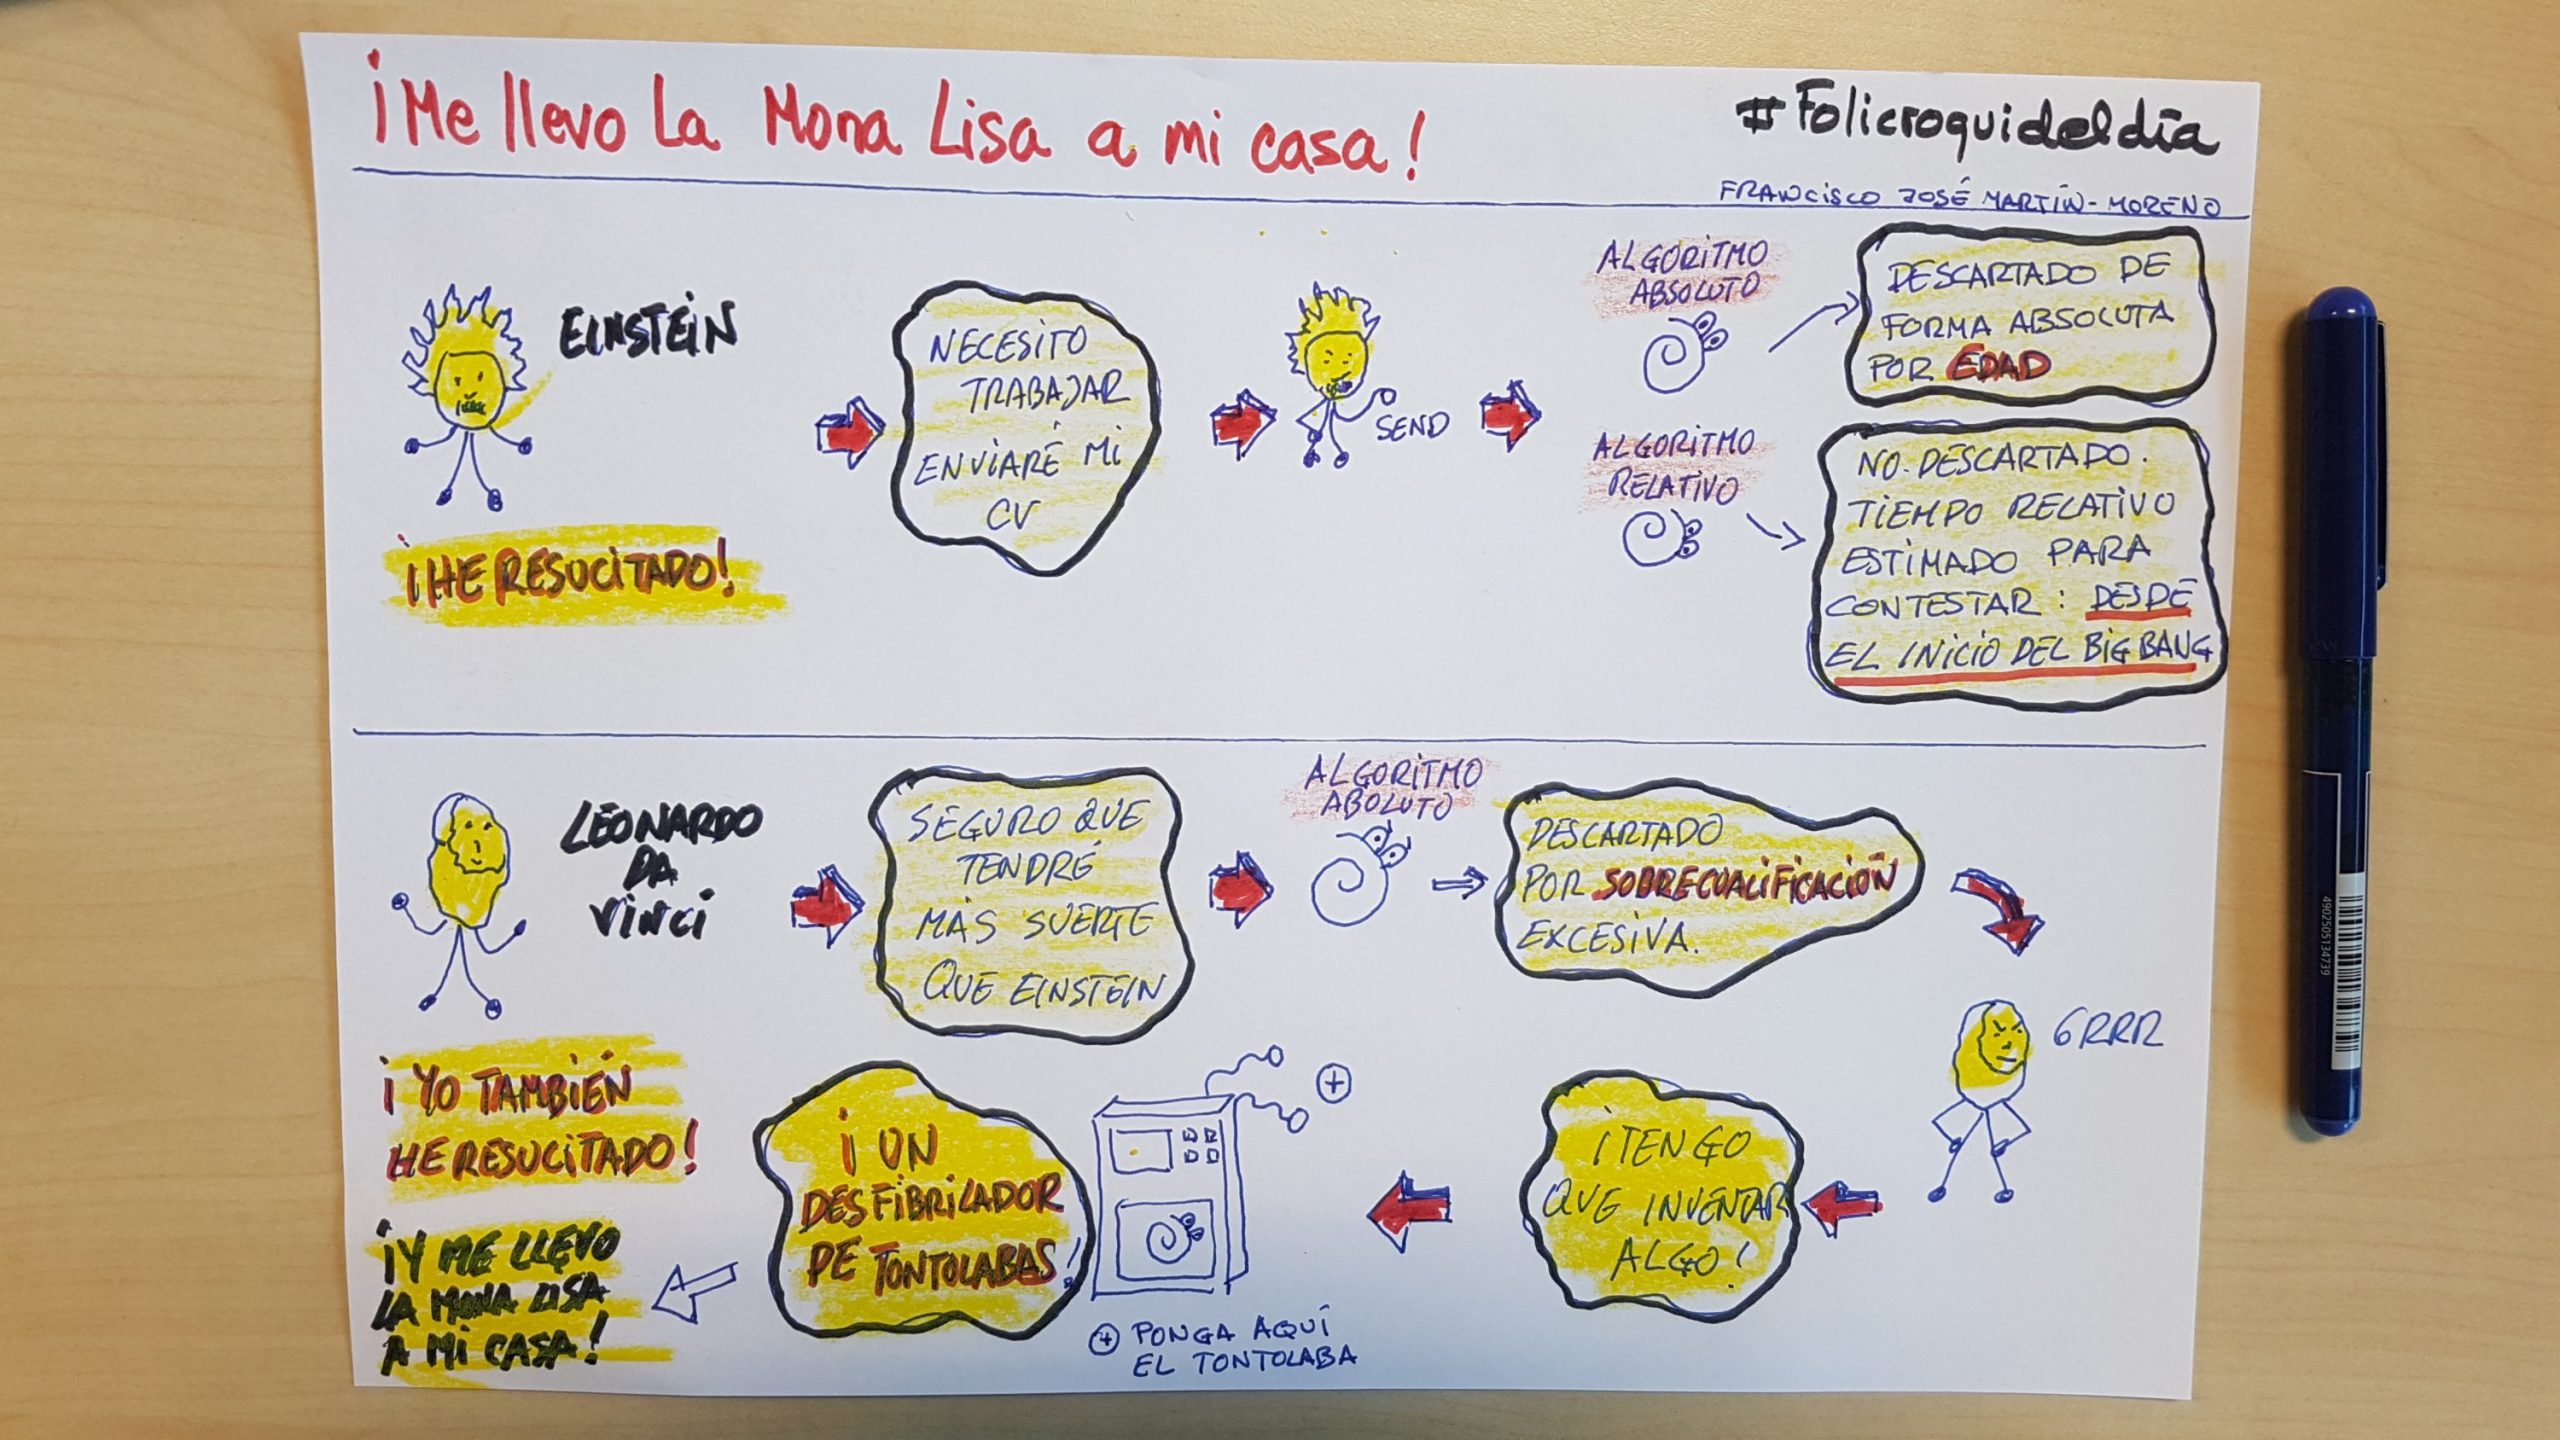 ¡Me llevo La Mona Lisa a mi casa!
#Folicroquideldía
FRANCISCO JOSÉ MARTÍN-MORENO
EINSTEIN
¡HE RESUCITADO!
NECESITO
TRABAJAR
ENVIARÉ MI
CV
SEND
ALGORITMO
ABSOLUTO
DESCARTADO DE
FORMA ABSOLUTA
POR EDAD
ALGORITMO
RELATIVO
NO DESCARTADO.
TIEMPO RELATIVO
ESTIMADO PARA
CONTESTAR: DESDE
EL INICIO DEL BIG BANG
LEONARDO
DA
VINCI
¡YO TAMBIÉN
HE RESUCITADO!
SEGURO QUE
TENDRÉ
MÁS SUERTE
QUE EINSTEIN
ALGORITMO
ABOLUTO
DESCARTADO
POR SOBRECUALIFICACIÓN
EXCESIVA.
GRRR
¡TENGO
QUE INVENTAR
ALGO!
+
¡UN
DESFIBRILADOR
DE TONTOLABAS!
+ PONGA AQUÍ
EL TONTOLABA
¡Y ME LLEVO
LA MONA LISA
A MI CASA!
4902505134739